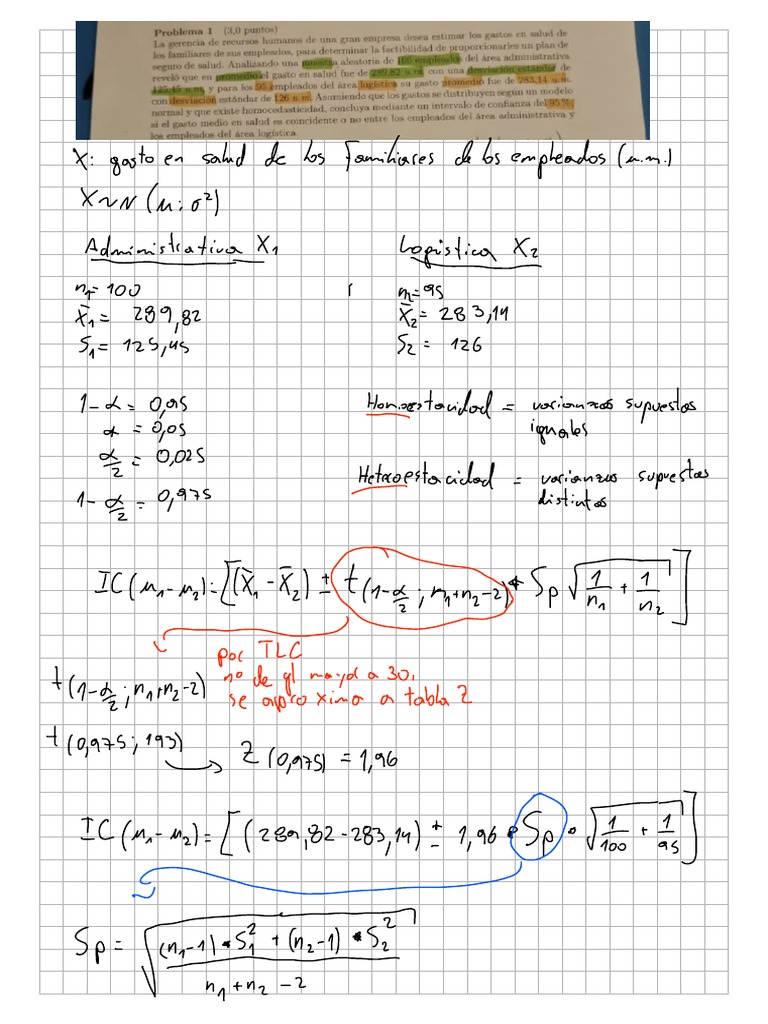 Problema 1 (3,0 puntos)
La gerencia de recursos humanos de una gran empresa desea estimar los gastos en salud de
los familiares de sus empleados, para determinar la factibilidad de proporcionarles un plan de
seguro de salud. Analizando una muestra aleatoria de 100 empleados del área administrativa
reveló que en promedio el gasto en salud fue de 289,82 u.m. con una desviación estándar de
125,45 u.m. y para los 95 empleados del área logística su gasto promedio fue de 283,14 u.m.
con desviación estándar de 126 u.m. Asumiendo que los gastos se distribuyen según un modelo
normal y que existe homocedasticidad, concluya mediante un intervalo de confianza del 95%,
si el gasto medio en salud es coincidente o no entre los empleados del área administrativa y
los empleados del área logística.
X: gasto en salud de los familiares de los empleados (u.m.)
X~N (μ; σ²)
Administrativa X₁ Logistica X₂
n₁= 100 n₂= 95
X̄₁= 289,82 X̄₂= 283,14
S₁= 125,45 S₂= 126
1-α = 0,95 Homoestacidad = varianzas supuestas
α = 0,05 iguales
α/2 = 0,025
Hetroestacidad = varianzas supuestas
1-α/2 = 0,975 distintas
IC(μ₁-μ₂)=[(X̄₁-X̄₂) ± t(1-α/2; n₁+n₂-2) * Sp √(1/n₁ + 1/n₂)]
por TLC
t(1-α/2; n₁+n₂-2) nº de gl mayor a 30,
se aproxima a tabla Z
t(0,975; 193) → Z(0,975) = 1,96
IC(μ₁-μ₂)=[(289,82-283,14) ± 1,96 • Sp • √(1/100 + 1/95)]
Sp = √((n₁-1)*S₁² + (n₂-1)*S₂² / n₁+n₂-2)